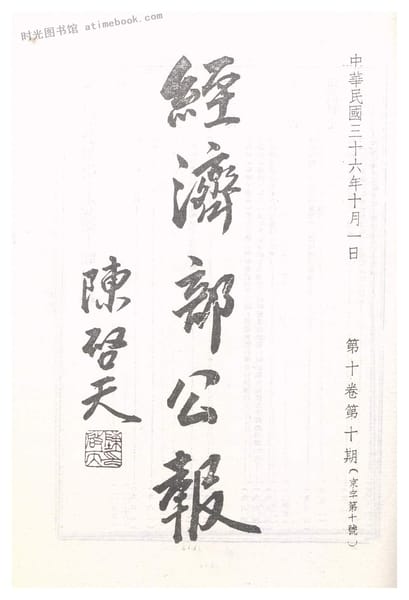 时光图书馆 atimebook.com
中華民國三十六年十月一日
第十卷第十期(京字第十號)
經濟部公報
陳啓天